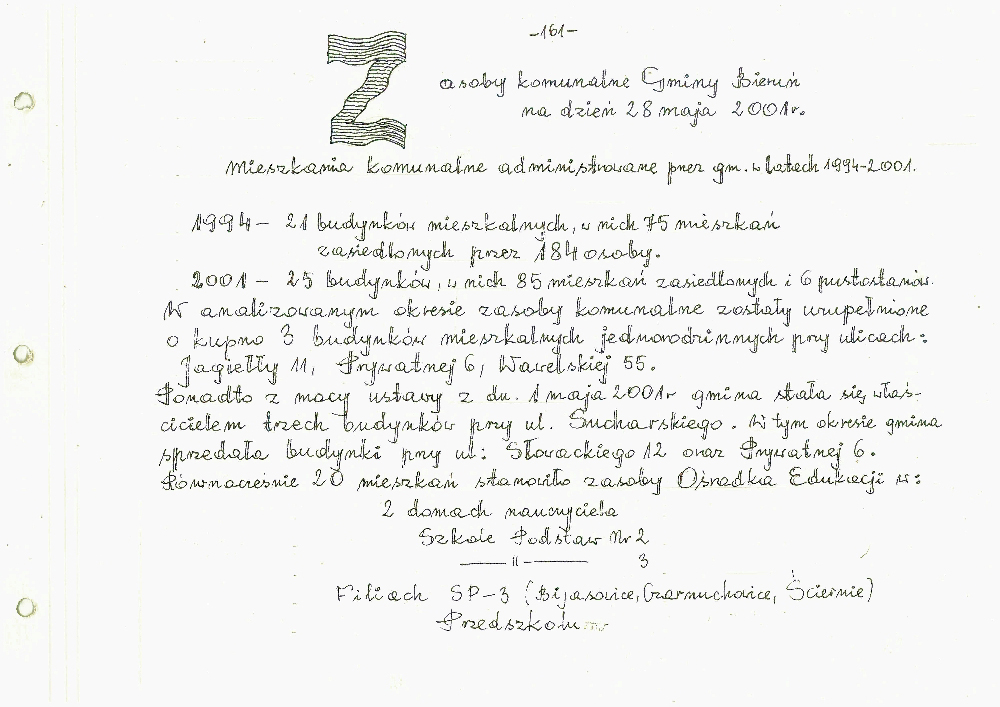 -161-
Zasoby komunalne Gminy Bieruń
na dzień 28 maja 2001r.
Mieszkania komunalne administrowane przez gm. w latach 1994-2001.
1994 - 21 budynków mieszkalnych, w nich 75 mieszkań
zasiedlonych przez 184 osoby.
2001 - 25 budynków, w nich 85 mieszkań zasiedlonych i 6 pustostanów.
W analizowanym okresie zasoby komunalne zostały uzupełnione
o kupno 3 budynków mieszkalnych jednorodzinnych przy ulicach:
Jagiełły 11, Prywatnej 6, Wawelskiej 55.
Ponadto z mocy ustawy z dn. 1 maja 2001r gmina stała się właś-
cicielem trzech budynków przy ul. Sucharskiego. W tym okresie gmina
sprzedała budynki przy ul: Słowackiego 12 oraz Prywatnej 6.
Równocześnie 20 mieszkań stanowiło zasoby Ośrodka Edukacji w:
2 domach nauczyciela
Szkole Podstaw Nr 2
— 11 — 3
Filiach SP-3 (Bijasowice, Czarnuchowice, Ściernie)
Przedszkolu